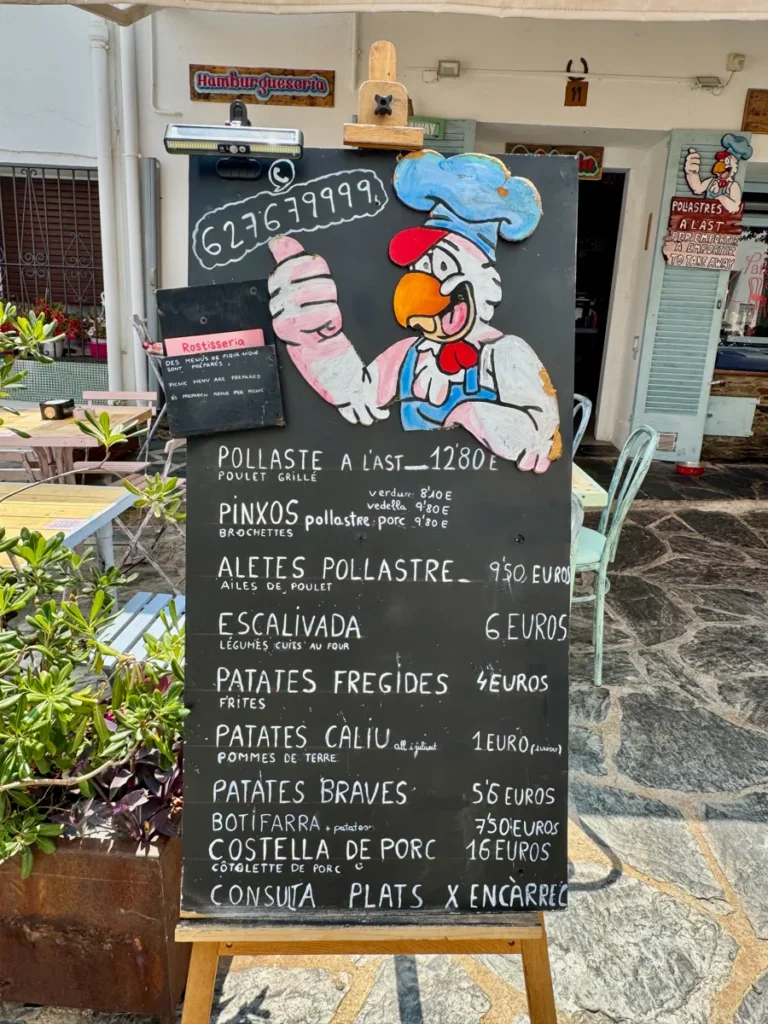 Hamburgueseria
11
627679999
POLLASTRES
A L'AST
PER EMPORTAR
A EMPORTAR
TO TAKE AWAY
Rostisseria
DES MENUS DE PIQUE NIQUE
SONT PRÉPARÉS.
PICNIC MENU ARE PREPARED
ES PREPAREU MENU PER PICNIC
POLLASTE A L'AST 12'80 E
POULET GRILLÉ
verdura 8'10 E
vedella 9'80 E
PINXOS pollastre, porc 9'80 E
BROCHETTES
ALETES POLLASTRE 9'50 EUROS
AILES DE POULET
ESCALIVADA 6 EUROS
LÉGUMES CUITS AU FOUR
PATATES FREGIDES 4 EUROS
FRITES
PATATES CALIU all i julivert 1 EURO
POMMES DE TERRE
PATATES BRAVES 5'6 EUROS
BOTIFARRA + patates 7'50 EUROS
COSTELLA DE PORC 16 EUROS
CÔTOLETTE DE PORC
CONSULTA PLATS X ENCÀRREC